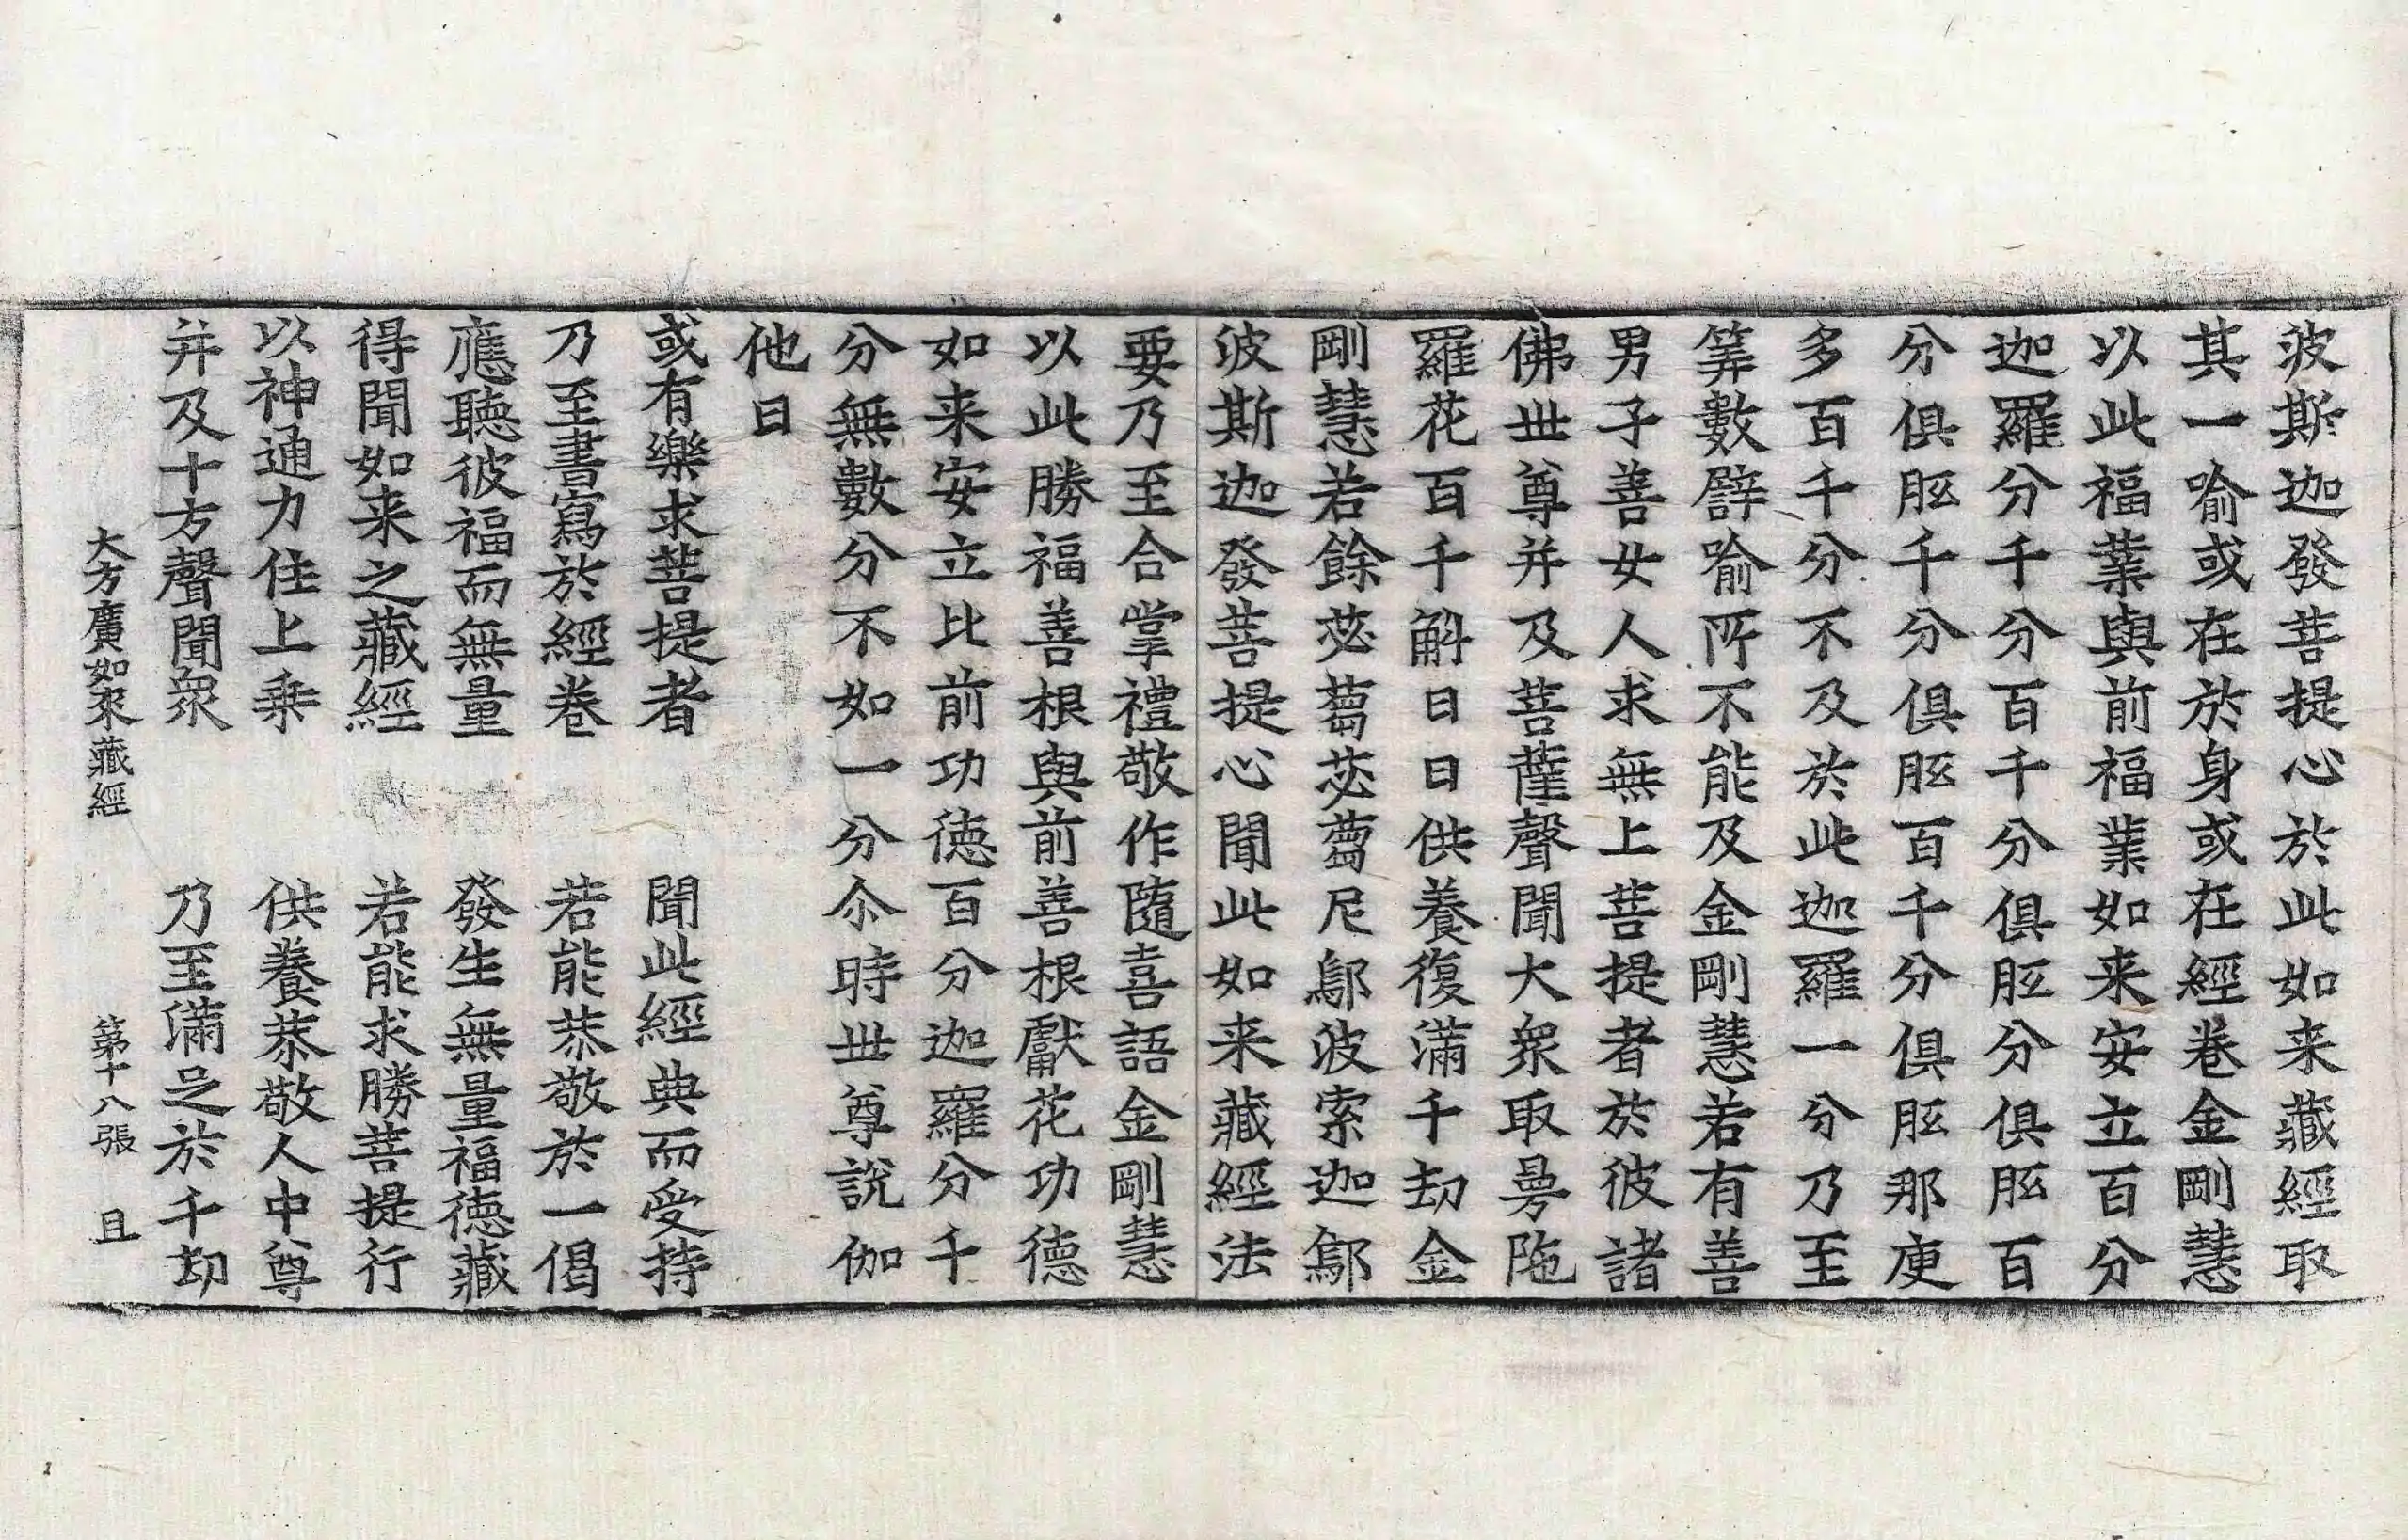 波斯迦發菩提心於此如来藏經取
其一喻或在於身或在經卷金剛慧
以此福業與前福業如来安立百分
迦羅分千分百千分俱胝分俱胝百
分俱胝千分俱胝百千分俱胝那庾
多百千分不及於此迦羅一分乃至
筭數譬喻所不能及金剛慧若有善
男子善女人求無上菩提者於彼諸
佛世尊并及菩薩聲聞大衆取曼陁
羅花百千斛日日供養復滿千劫金
剛慧若餘苾蒭苾蒭尼鄔波索迦鄔
波斯迦發菩提心聞此如来藏經法
要乃至合掌禮敬作隨喜語金剛慧
以此勝福善根與前善根獻花功德
如来安立比前功德百分迦羅分千
分無數分不如一分尒時世尊說伽
他曰
或有樂求菩提者　聞此經典而受持
乃至書寫於經卷　若能恭敬於一偈
應聽彼福而無量　發生無量福德藏
得聞如来之藏經　若能求勝菩提行
以神通力住上乗　供養恭敬人中尊
并及十方聲聞衆　乃至滿足於千劫
大方廣如来藏經　第十八張　且